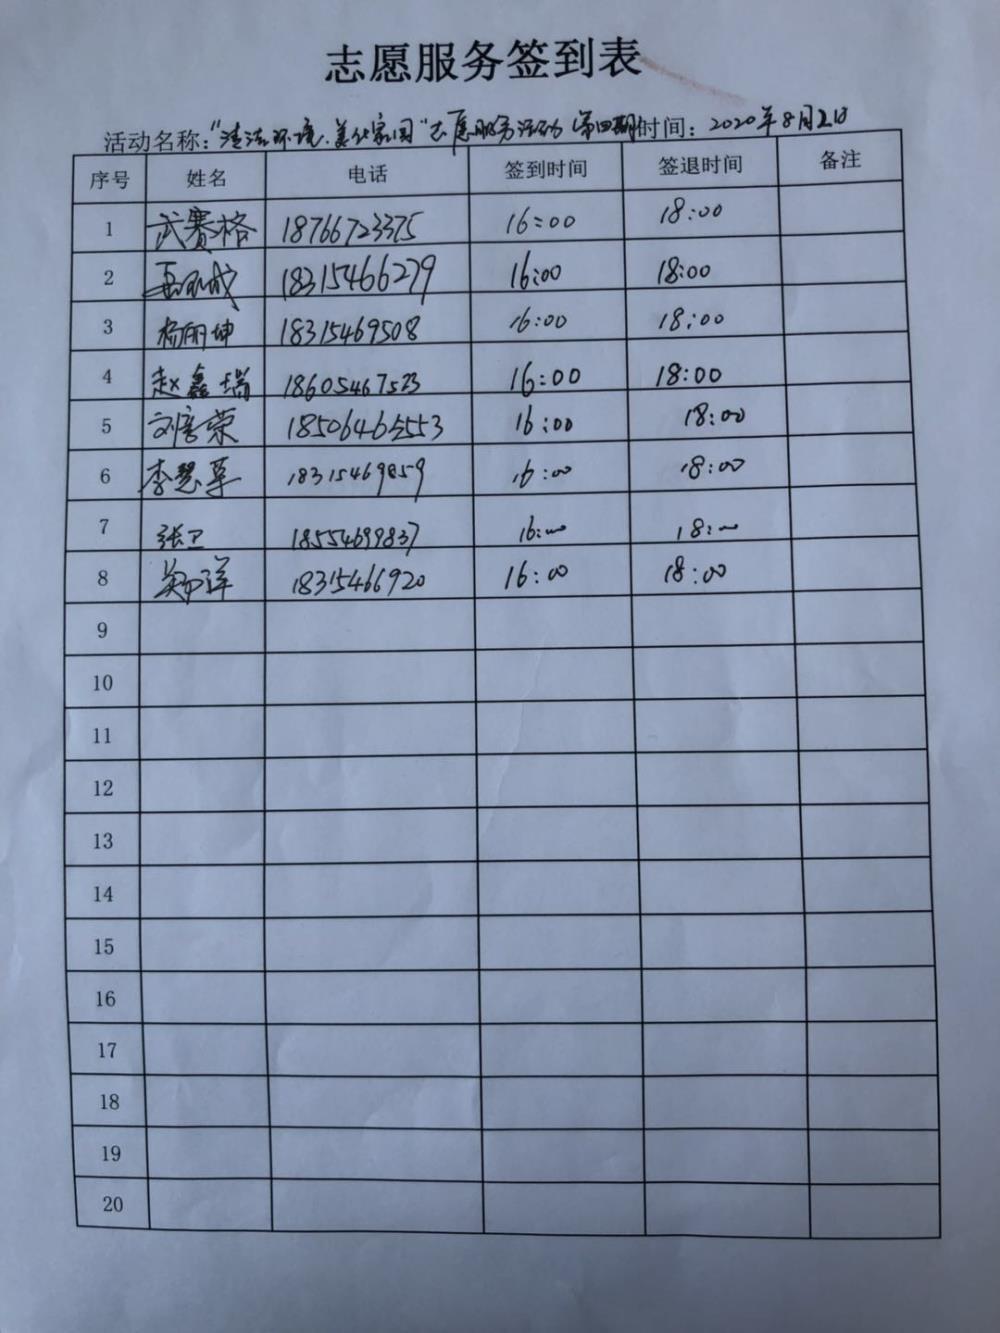 志愿服务签到表
活动名称："清洁环境、美化家园"志愿服务活动（第四期）时间：2020年8月2日
序号 姓名 电话 签到时间 签退时间 备注
1 武赛格 18766723375 16:00 18:00
2 18315466279 16:00 18:00
3 杨丽坤 18315469508 16:00 18:00
4 赵鑫瑞 18605467523 16:00 18:00
5 刘富荣 18506465553 16:00 18:00
6 李慧军 18315469859 16:00 18:00
7 张卫 18554699837 16:00 18:00
8 18315466920 16:00 18:00
9
10
11
12
13
14
15
16
17
18
19
20